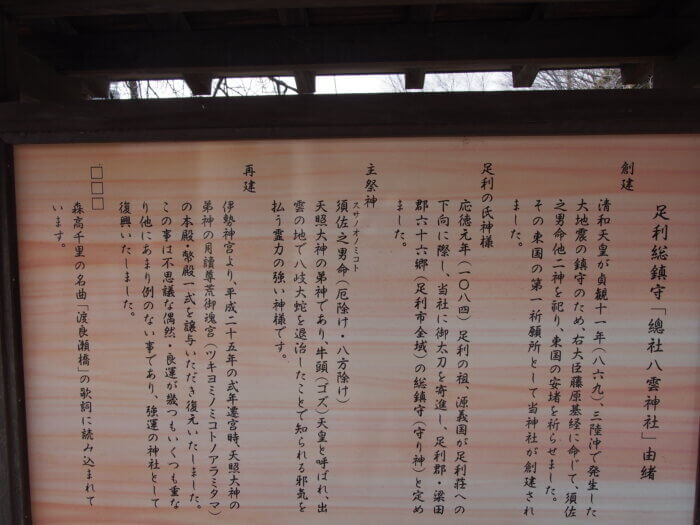 足利総鎮守「總社八雲神社」由緒
創建
清和天皇が貞観十一年（八六九）、三陸沖で発生した
大地震の鎮守のため、右大臣藤原基経に命じて、須佐
之男命他二神を祀り、東国の安堵を祈らせました。
その東国の第一祈願所として当神社が創建され
ました。
足利の氏神様
応徳元年（一〇八四）足利の祖、源義国が足利荘への
下向に際し、当社に御太刀を寄進し、足利郡・梁田
郡六十六郷（足利市全域）の総鎮守（守り神）と定め
ました。
主祭神
スサノオノミコト
須佐之男命（厄除け・八方除け）
天照大神の弟神であり、牛頭（ゴズ）天皇と呼ばれ、出
雲の地で八岐大蛇を退治したことで知られる邪気を
払う霊力の強い神様です。
再建
伊勢神宮より、平成二十五年の式年遷宮時、天照大神の
弟神の月讀尊荒御魂宮（ツキヨミノミコトノアラミタマ）
の本殿・幣殿一式を譲与いただき復元いたしました。
この事は不思議な偶然・良運が幾つもいくつも重な
り他にあまり例のない事であり、強運の神社として
復興いたしました。
□□□
森高千里の名曲「渡良瀬橋」の歌詞に読み込まれて
います。